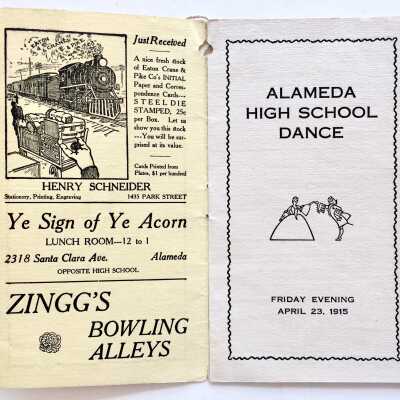 Just Received
A nice fresh stock
of Eaton Crane &
Pike Co's INITIAL
Paper and Corres-
pondence Cards—
STEEL DIE
STAMPED, 25c
per Box. Let us
show you this stock
—You will be sur-
prised at its value.
Cards Printed from
Plates, $1 per hundred
HENRY SCHNEIDER
Stationery, Printing, Engraving 1435 PARK STREET
Ye Sign of Ye Acorn
LUNCH ROOM—12 to 1
2318 Santa Clara Ave. Alameda
OPPOSITE HIGH SCHOOL
ZINGG'S
BOWLING
ALLEYS
ALAMEDA
HIGH SCHOOL
DANCE
FRIDAY EVENING
APRIL 23, 1915